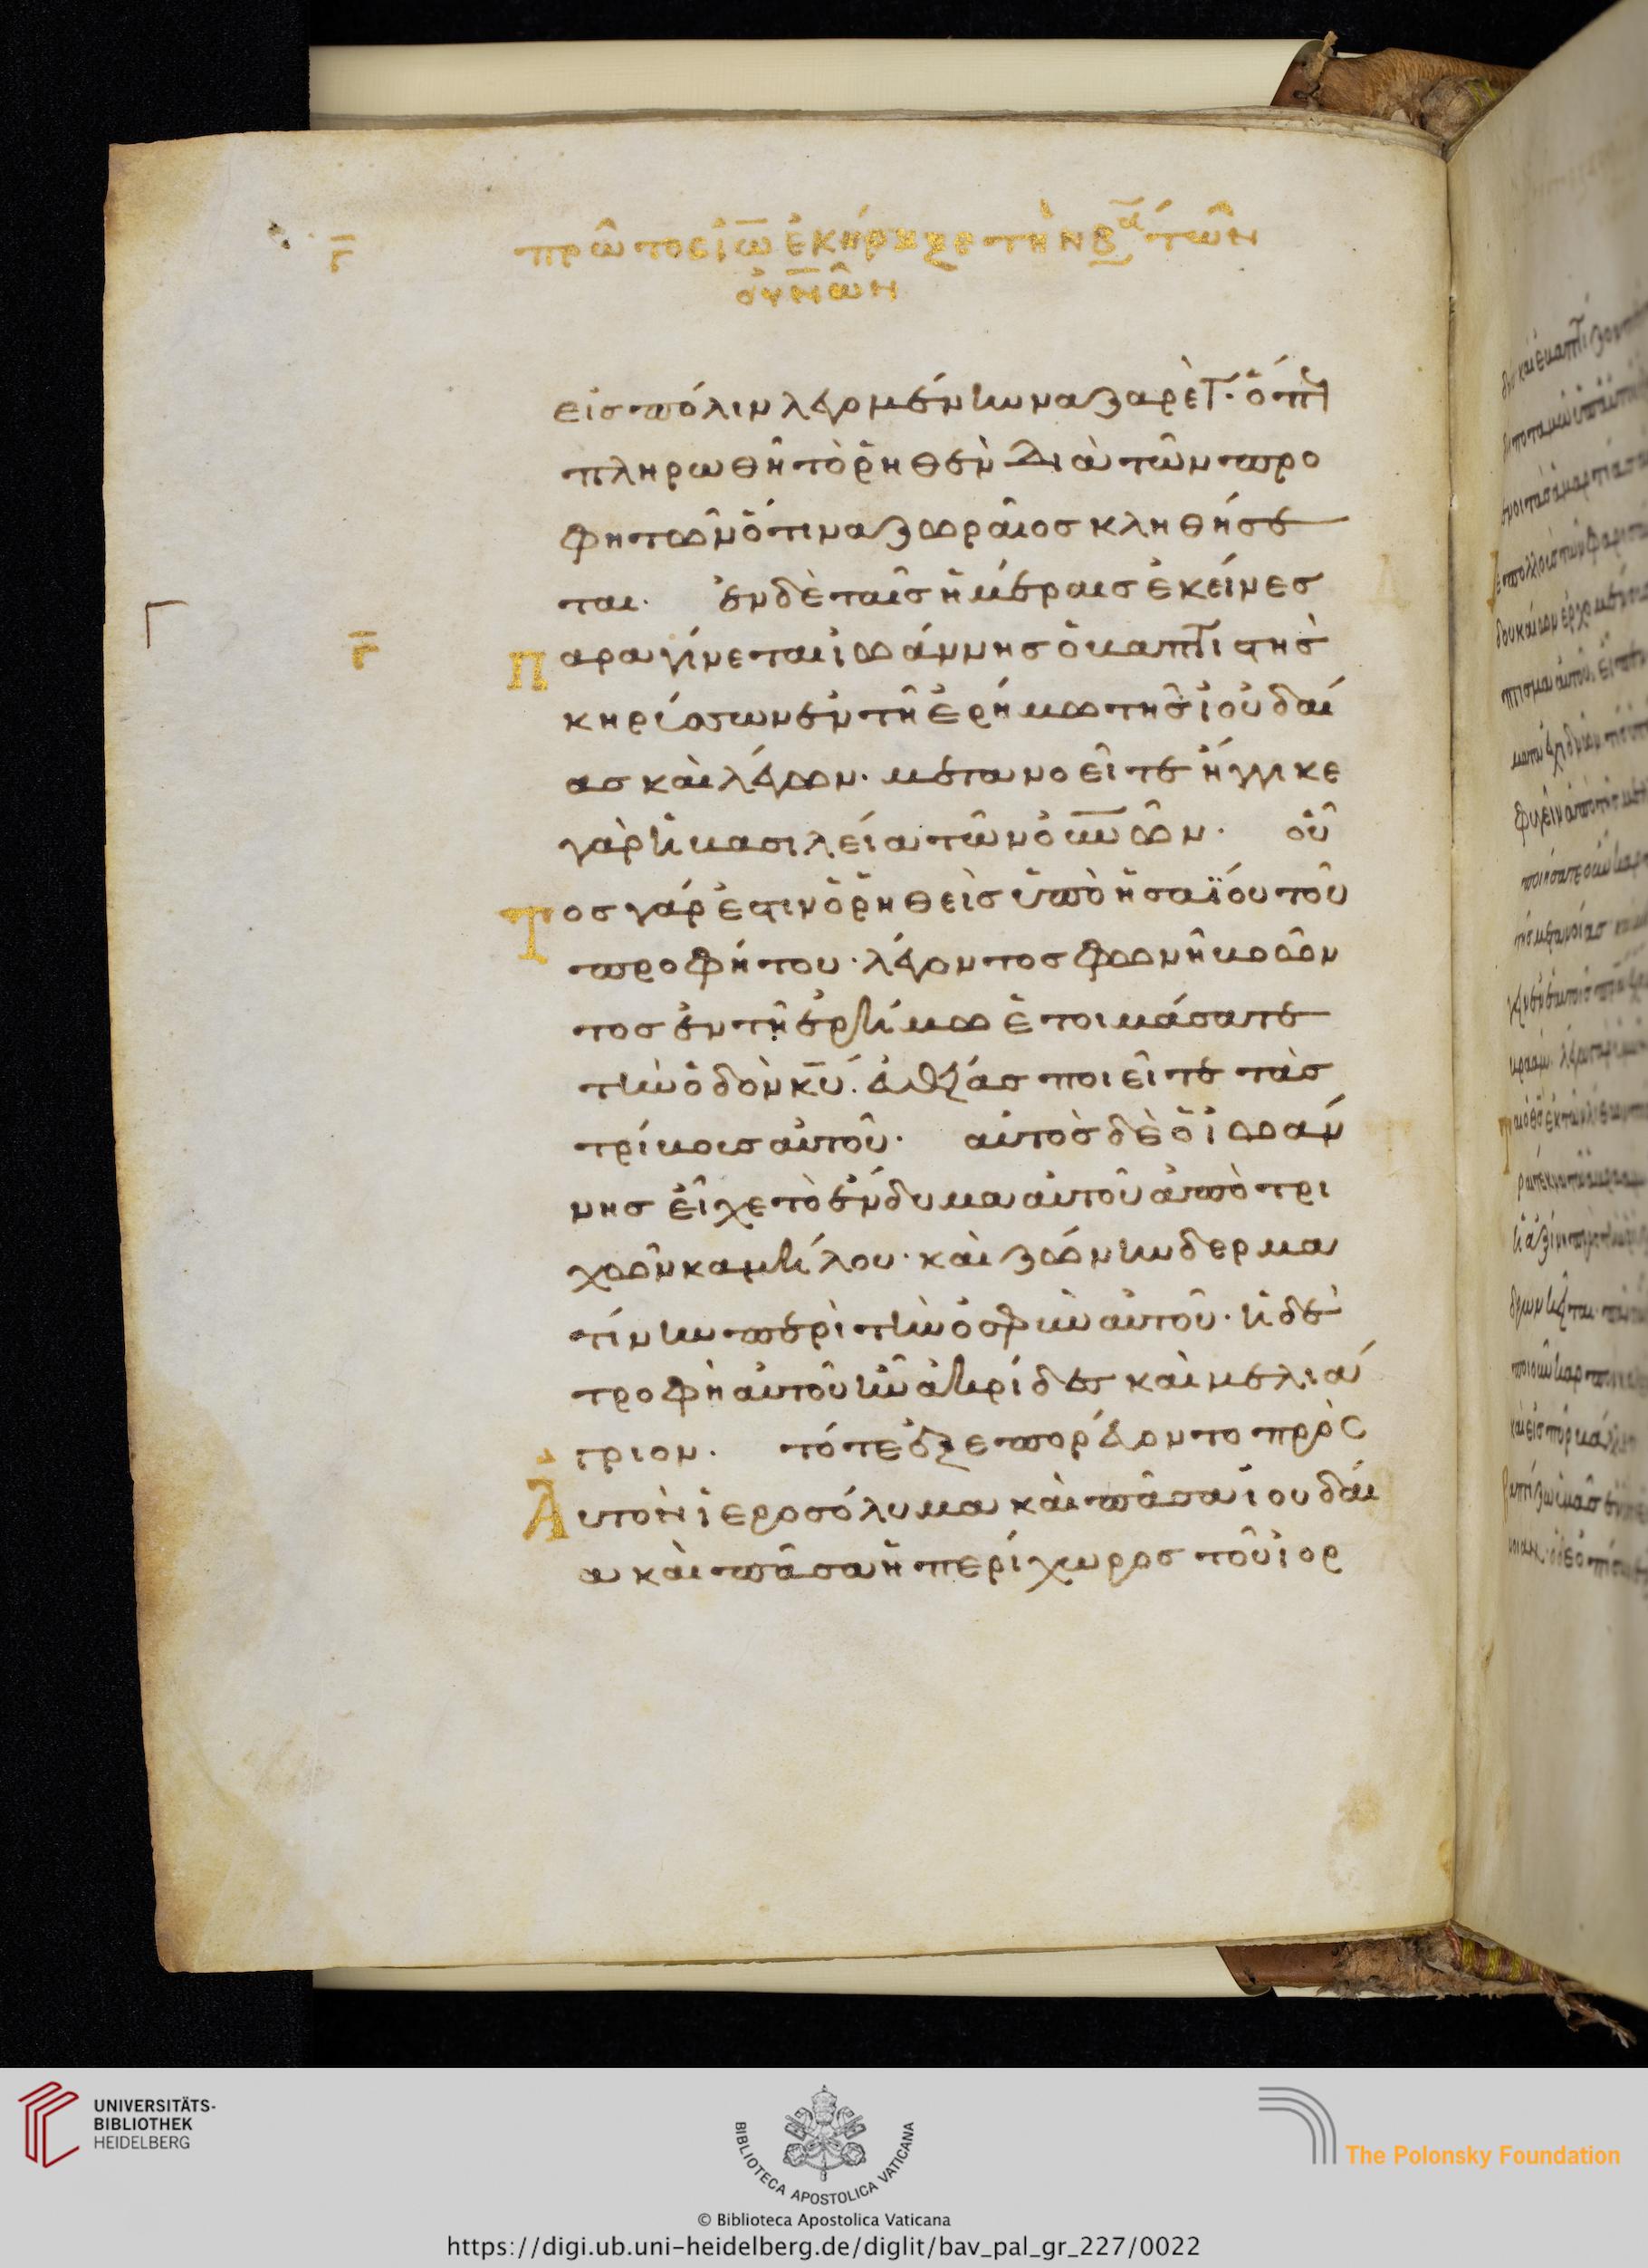 γ̅ πρῶτος ἰω̅ ἐκήρυξε τὴν βα̅ τῶν
οὐν̅ῶν
εἰς πόλιν λεγομένην ναζαρὲτ· ὅπως
πληρωθῆ τὸ ῥηθὲν διὰ τῶν προ
φητῶν ὅτι ναζωραῖος κληθήσε
ται· ἐν δὲ ταῖς ἡμέραις ἐκείνες
γ̅ Παραγίνεται ἰωάννης ὁ βαπτιστὴς
κηρύσσων ἐν τῆ ἐρήμω τῆς ἰουδαί
ας καὶ λέγων· μετανοεῖτε ἤγγικε
γὰρ ἡ βασιλεία τῶν οὐν̅ῶν· οὗ
Τος γάρ ἐστιν ὁ ῥηθεὶς ὑπὸ ἡσαΐου τοῦ
προφήτου· λέγοντος φωνὴ βοῶν
τος ἐν τῆ ἐρήμω ἑτοιμάσατε
τὴν ὁδὸν κ̅υ̅· εὐθείας ποιεῖτε τὰς
τρίβους αὐτοῦ· αὐτὸς δὲ ὁ ἰωάν
νης εἶχε τὸ ἔνδυμα αὐτοῦ ἀπὸ τρι
χῶν καμήλου· καὶ ζώνην δερμα
τίνην περὶ τὴν ὀσφὺν αὐτοῦ· ἡ δὲ
τροφὴ αὐτοῦ ἦν ἀκρίδες καὶ μέλι ἄ
γριον· τότε ἐξεπορεύοντο πρὸς
Αὐτὸν ἱεροσόλυμα καὶ πᾶσα ἰουδαί
α καὶ πᾶσα ἡ περίχωρος τοῦ ἰορ
UNIVERSITÄTS-
BIBLIOTHEK
HEIDELBERG
BIBLIOTECA APOSTOLICA VATICANA
The Polonsky Foundation
© Biblioteca Apostolica Vaticana
https://digi.ub.uni-heidelberg.de/diglit/bav_pal_gr_227/0022